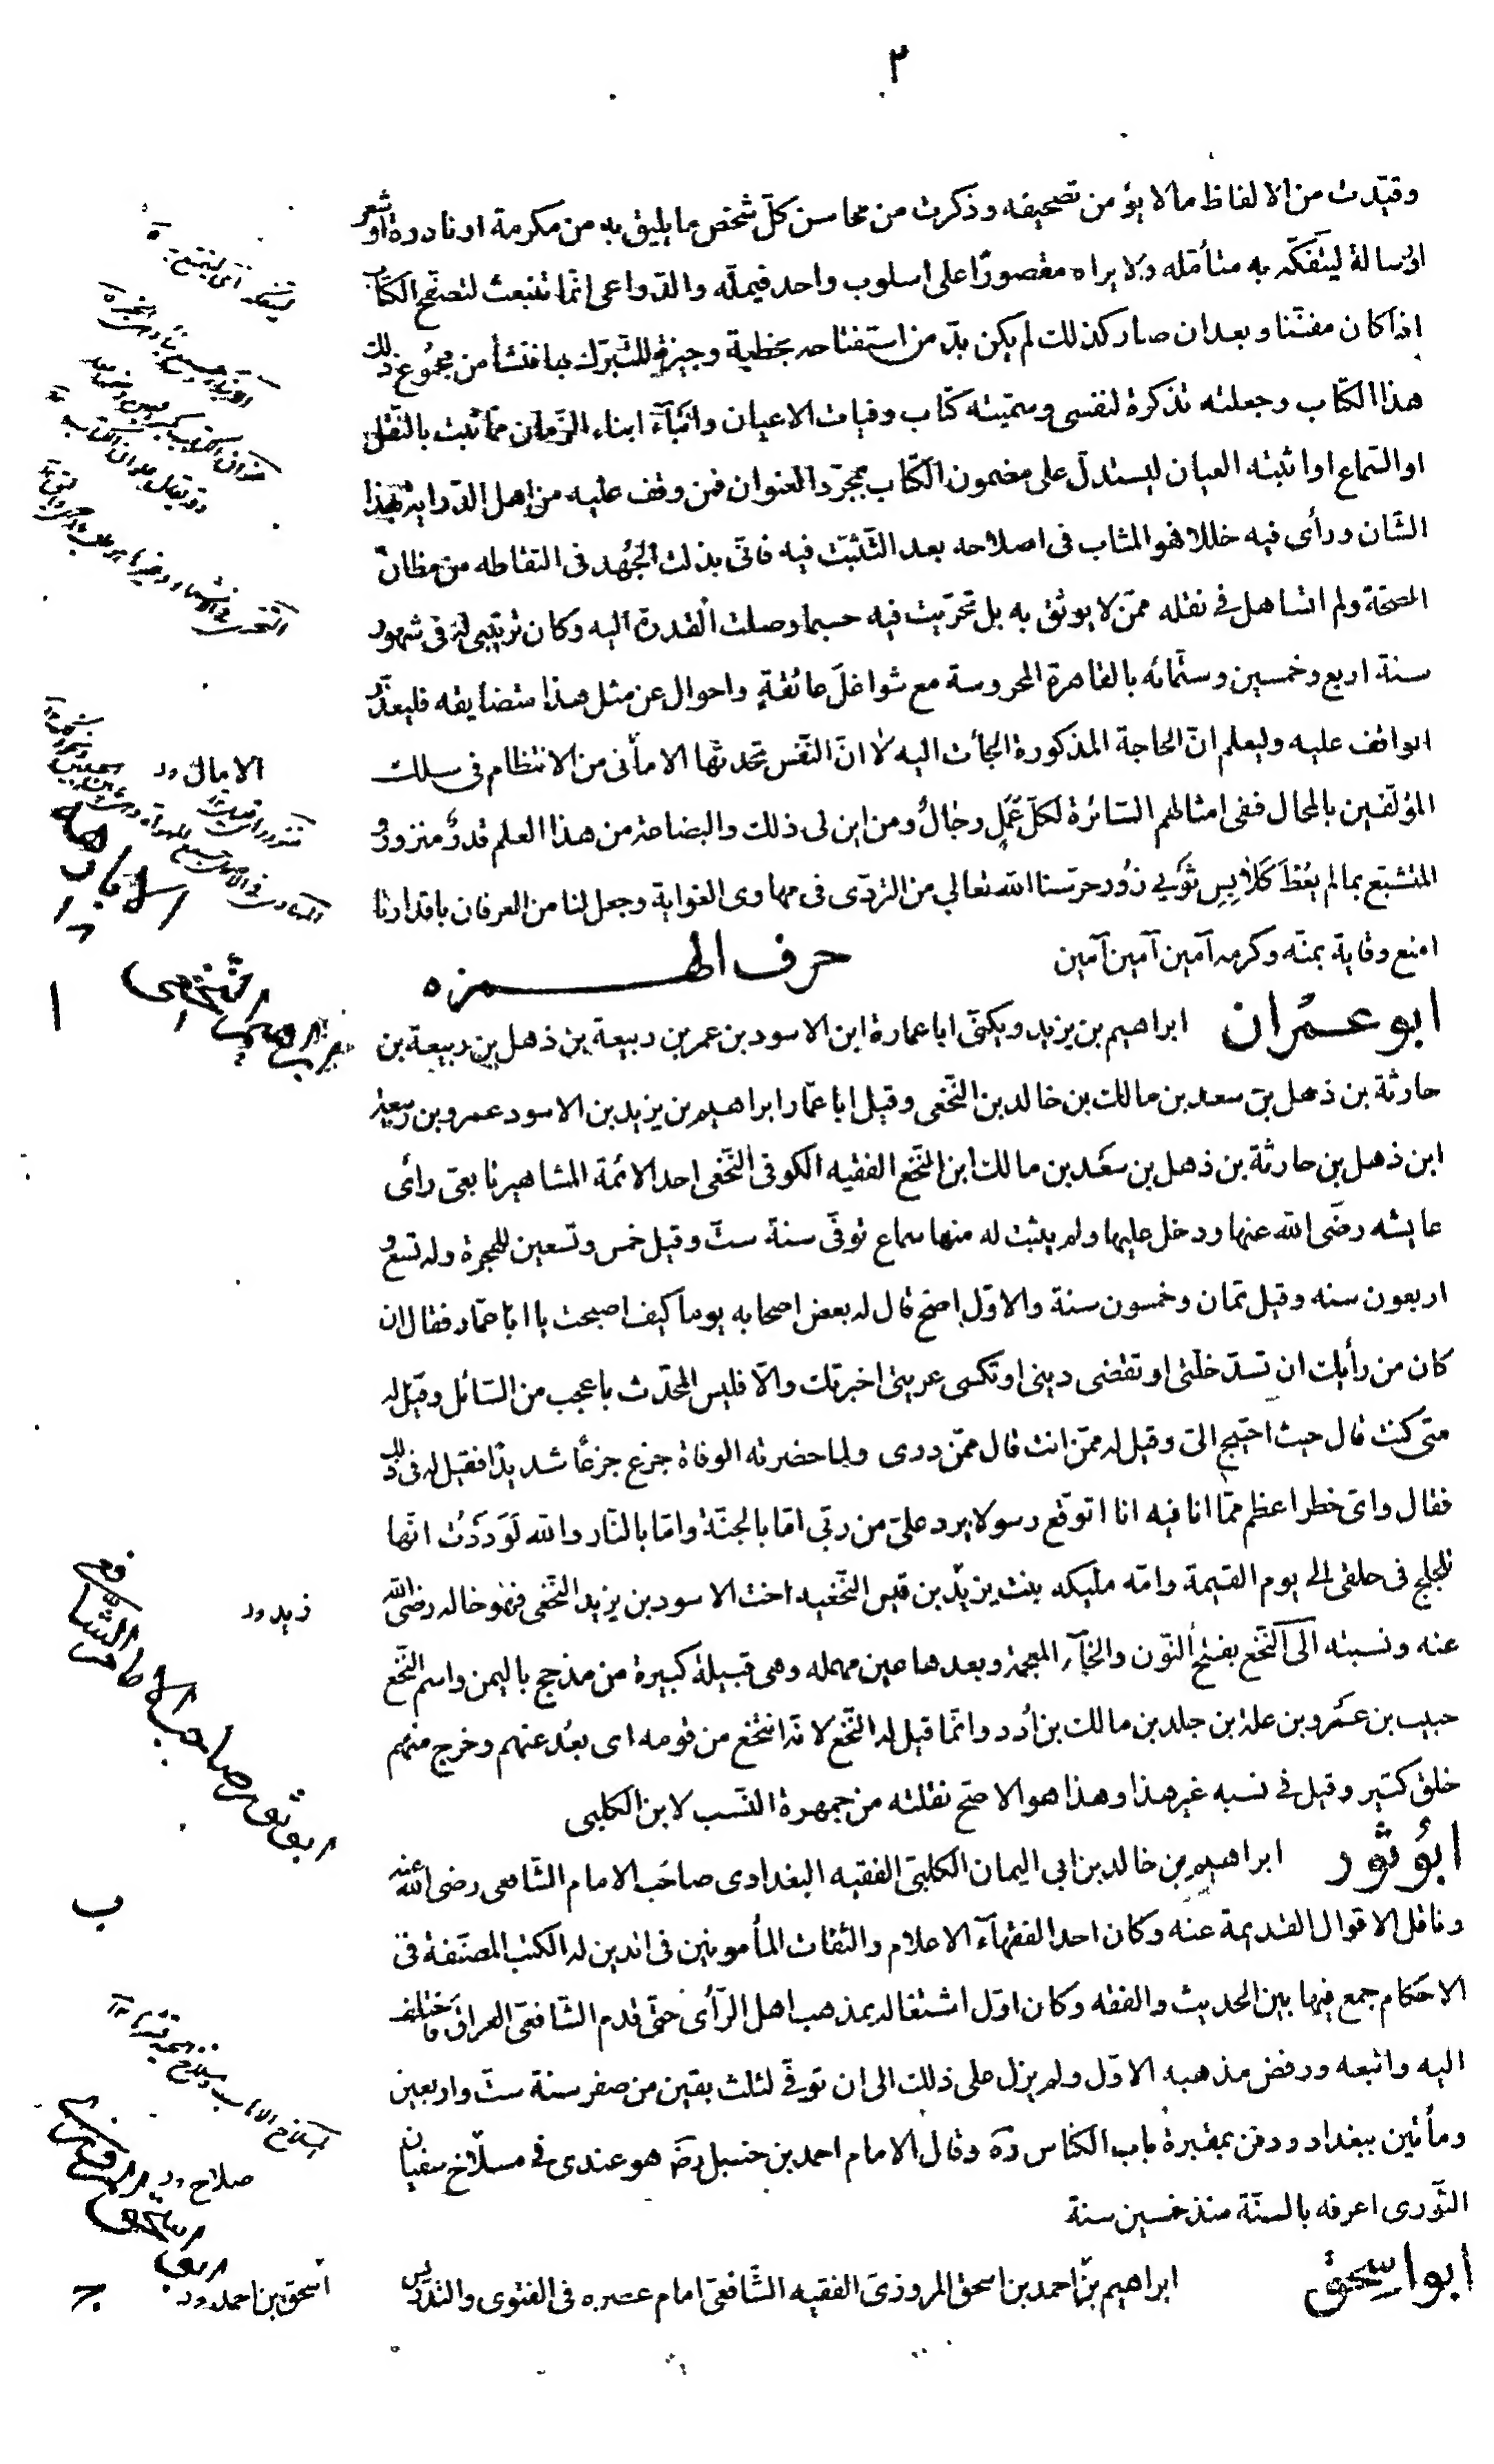 ٣
وقيّدت من الالفاظ مالا يؤمن تصحيفه وذكرت من محاسن كلّ شخص ما يليق به من مكرمة او نادرة او شعر
او رسالة ليتفكّه به متأمّله ولا يراه مقصورًا على اسلوب واحد فيملّه والدّواعى انّما تنبعث لتصفّح الكتاب
اذا كان مفنّنا وبعد ان صار كذلك لم يكن بدّ من استفتاحه بخطبة وجيزة للتّبرّك بها فنشأ من مجموع ذلك
هذا الكتاب وجعلته تذكرة لنفسى وسمّيته كتاب وفيات الاعيان وانبآء ابناء الزّمان ممّا ثبت بالنّقل
او السّماع او اثبته العيان ليستدلّ على مضمون الكتاب بمجرّد العنوان فمن وقف عليه من اهل الدّراية بهذا
الشّان ورأى فيه خللا فهو المثاب فى اصلاحه بعد التّثبّت فيه فانّى بذلت الجُهد فى التقاطه من مظانّ
الصحّة ولم اتساهل فى نقله ممّن لا يوثق به بل تحرّيت فيه حسبما وصلت القدرة اليه وكان ترتيبى له فى شهور
سنة اربع وخمسين وستّمائه بالقاهرة المحروسة مع شواغل عائقةٍ واحوال عن مثل هذا متضايقه فليعذر
الواقف عليه وليعلم انّ الحاجة المذكورة الجأت اليه لا انّ النّفس تحدثها الامانى من الانتظام فى سلك
المؤلّفين بالمحال ففى امثالهم السّائرة لكلّ عَمَلٍ رجالٌ ومن اين لى ذلك والبضاعة من هذا العلم قدرٌ منزور و
المتشبّع بما لم يُعْطَ كَلابِسِ ثوبَي زُور حرسنا الله تعالي من التردّى فى مهاوى الغواية وجعل لنا من العرفان باقدارنا
امنع وقاية بمنّه وكرمه آمين آمين آمين
حرف الهمزه
ابو عمران ابراهيم بن يزيد ويكنّى ابا عمارة ابن الاسود بن عمر بن ربيعة بن ذهل بن ربيعة بن
حارثة بن ذهل بن سعد بن مالك بن خالد بن النّخعى وقيل ابا عمّار ابراهيم بن يزيد بن الاسود عمرو بن ربيعة
ابن ذهل بن حارثة بن ذهل بن سعد بن مالك ابن النّخع الفقيه الكوفى النّخعى احد الائمة المشاهير تابعىّ رأى
عايشه رضى الله عنها ودخل عليها ولم يثبت له منها سماع توفّى سنة ستّ وقيل خمس وتسعين للهجرة وله تسع و
اربعون سنه وقيل ثمان وخمسون سنة والاوّل اصحّ قال له بعض اصحابه يوما كيف اصبحت يا ابا عمّار فقال ان
كان من رأيك ان تسدّ خلّتى او تقضى دينى او تكسى عريتى اخبرتك والّا فليس المحدّث باعجب من السّائل وقيل له
متى كنت قال حيث احتيج الىّ وقيل له ممّن انت قال ممّن روى ولما حضرته الوفاة جزع جزعًا شديدًا فقيل له فى ذلك
فقال واىّ خطر اعظم ممّا انا فيه انا اتوقّع رسولا يرد علىّ من ربّى امّا بالجنّة وامّا بالنّار والله لَوَدَدْتُ انّها
تلجلج فى حلقى الى يوم القيمة وامّه مليكه بنت يزيد بن قيس النّخعيه اخت الاسود بن يزيد النّخعى فهو خاله رضى الله
عنه ونسبته الى النّخع بفتح النّون والخآء المعجمة وبعدها عين مهمله وهى قبيلة كبيرة من مذحج باليمن واسم النّخع
حبيب بن عمرو بن علة بن جلد بن مالك بن اُدد وانّما قيل له النّخع لانّه انتخع من قومه اى بعُد عنهم وخرج منهم
خلق كثير وقيل فى نسبه غير هذا وهذا هو الاصحّ نقلته من جمهرة النّسب لابن الكلبى
ابو ثور ابراهيم بن خالد بن ابي اليمان الكلبىّ الفقيه البغدادى صاحب الامام الشّافعى رضى الله عنه
وناقل الاقوال القديمة عنه وكان احد الفقهآء الاعلام والثقات المأمونين فى الدين له الكتب المصنّفة فى
الاحكام جمع فيها بين الحديث والفقه وكان اوّل اشتغاله بمذهب اهل الرّأى حتّى قدم الشّافعىّ العراق فاختلف
اليه واتبعه ورفض مذهبه الاوّل ولم يزل على ذلك الى ان توفّي لثلث بقين من صفر سنة ستّ واربعين
ومأتين ببغداد ودفن بمقبرة باب الكناس رَه وقال الامام احمد بن حنبل رضَ هو عندى فى مسلاخ سفيان
الثّورى اعرفه بالسنّة منذ خمسين سنة
ابو اسحق ابراهيم بن احمد بن اسحق المروزىّ الفقيه الشّافعىّ امام عصره فى الفتوى والتدريس
الامال
ابراهيم النخعى
ا
زيد
ابو ثور صاحب الامام الشّافعى
ب
صلاح
ابو اسحق المروزى
اسحق بن احمد
ج